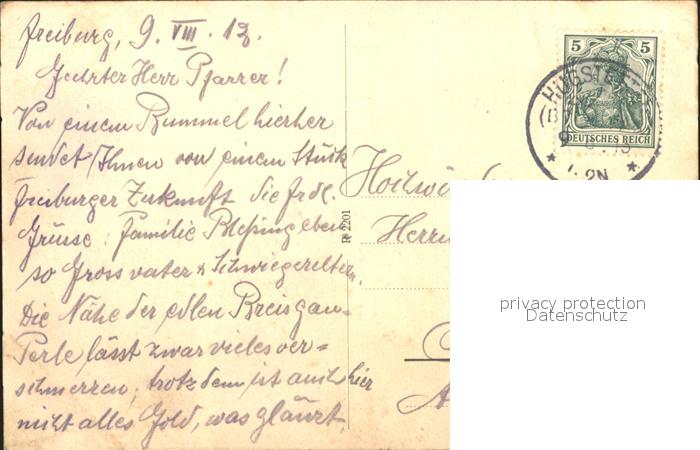 Freiburg, 9. VIII. 13.
Geehrter Herr Pfarrer!
Von einem Bummel hierher
sendet Ihnen von einem Stück
Freiburger Zukunft die frdl.
Grüsse: Familie Blessing eben
so Grossvater & Schwiegereltern.
Die Nähe der edlen Breisgau-
Perle lässt zwar vieles ver=
schmerzen; trotzdem ist auch hier
nicht alles Gold, was glänzt.
R 2201
5 5
DEUTSCHES REICH
HUGSTE
2N
Hochwü
Herrn
privacy protection
Datenschutz